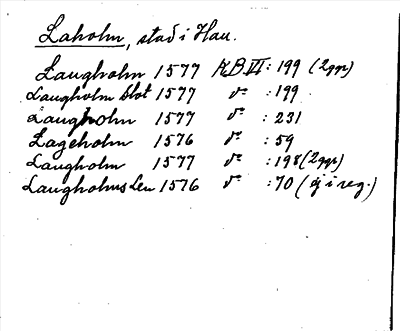 Laholm, stad i Hall.
Laugholm 1577 K.B. VI: 199 (2ggr)
Laugholm Slot 1577 d:o : 199.
Laugholm 1577 d:o : 231
Lageholm 1576 d:o : 59
Laugholm 1577 d:o : 198 (2ggr)
Laugholms Len 1576 d:o : 70 (ej i reg.)